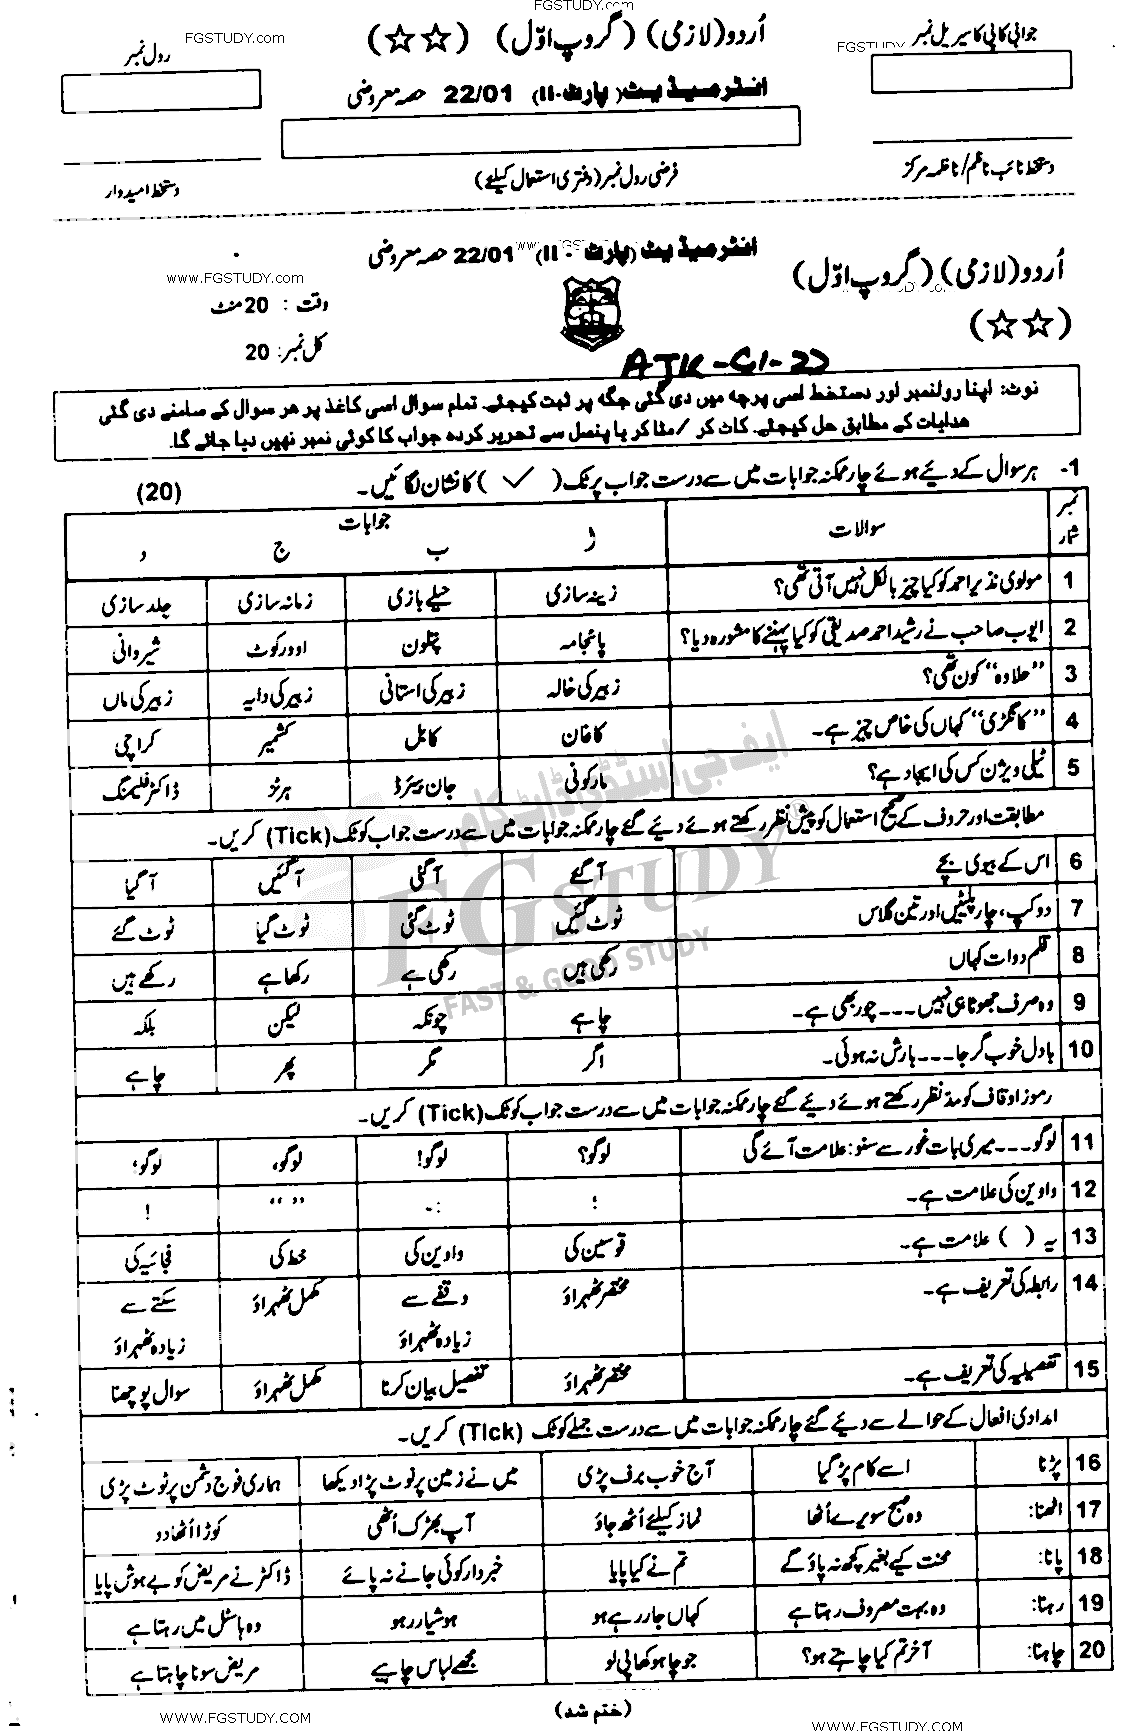 FGSTUDY.COM
جوابی کاپی کا سیریل نمبر
اُردو (لازمی) (گروپ اوّل) (☆☆)
رول نمبر
FGSTUDY.com
FGSTUDY
انٹرمیڈیٹ (پارٹ-II) 22/01 حصہ معروضی
دستخط نائب ناظم / ناظمہ مرکز
فرضی رول نمبر (دفتری استعمال کیلئے)
دستخط امیدوار
اُردو (لازمی) (گروپ اوّل)
انٹرمیڈیٹ (پارٹ - II) 22/01 حصہ معروضی
www.FGSTUDY.com
وقت : 20 منٹ
(☆☆)
کل نمبر: 20
AJK-G1-22
نوٹ: اپنا رولنمبر اور دستخط اسی پرچہ میں دی گئی جگہ پر ثبت کیجئے۔ تمام سوال اسی کاغذ پر ہر سوال کے سامنے دی گئی
ہدایات کے مطابق حل کیجئے۔ کاٹ کر / مٹا کر یا پنسل سے تحریر کردہ جواب کا کوئی نمبر نہیں دیا جائے گا۔
1- ہر سوال کے دیئے ہوئے چار ممکنہ جوابات میں سے درست جواب پر ٹک ( ✓ ) کا نشان لگائیں۔ (20)
نمبر شمار سوالات جوابات
ا ب ج د
1 مولوی نذیر احمد کو کیا چیز بالکل نہیں آتی تھی؟ زینہ سازی حیلے بازی زمانہ سازی جلد سازی
2 ایوب صاحب نے رشید احمد صدیقی کو کیا پہننے کا مشورہ دیا؟ پائجامہ پتلون اوور کوٹ شیروانی
3 "حلاوہ" کون تھی؟ زبیر کی خالہ زبیر کی استانی زبیر کی دایہ زبیر کی ماں
4 "کانگڑی" کہاں کی خاص چیز ہے۔ کاغان کابل کشمیر کراچی
5 ٹیلی ویژن کس کی ایجاد ہے؟ مارکونی جان بیئرڈ ہرٹز ڈاکٹر فلیمنگ
مطابقت اور حروف کے صحیح استعمال کو پیش نظر رکھتے ہوئے دیئے گئے چار ممکنہ جوابات میں سے درست جواب کو ٹک (Tick) کریں۔
6 اس کے بیوی بچے آ گئے آ گئی آ گئیں آ گیا
7 دو کپ، چار پلیٹیں اور تین گلاس ٹوٹ گئیں ٹوٹ گئی ٹوٹ گیا ٹوٹ گئے
8 قلم دوات کہاں رکھی ہیں رکھی ہے رکھا ہے رکھے ہیں
9 وہ صرف جھوٹا ہی نہیں --- چور بھی ہے۔ چاہے چونکہ لیکن بلکہ
10 بادل خوب گرجا --- بارش نہ ہوئی۔ اگر مگر پھر چاہے
رموز اوقاف کو مدنظر رکھتے ہوئے دیئے گئے چار ممکنہ جوابات میں سے درست جواب کو ٹک (Tick) کریں۔
11 لوگو --- میری بات غور سے سنو: علامت آئے گی لوگو؟ لوگو! لوگو، لوگو؛
12 واوین کی علامت ہے۔ ؛ :- " " !
13 یہ ( ) علامت ہے۔ قوسین کی واوین کی خط کی فجائیہ کی
14 رابطہ کی تعریف ہے۔ مختصر ٹھہراؤ وقفے سے زیادہ ٹھہراؤ مکمل ٹھہراؤ سکتے سے زیادہ ٹھہراؤ
15 تفصیلیہ کی تعریف ہے۔ مختصر ٹھہراؤ تفصیل بیان کرنا مکمل ٹھہراؤ سوال پوچھنا
امدادی افعال کے حوالے سے دیئے گئے چار ممکنہ جوابات میں سے درست جملے کو ٹک (Tick) کریں۔
16 پڑنا اسے کام پڑ گیا آج خوب برف پڑی میں نے زمین پر نوٹ پڑا دیکھا ہماری فوج دشمن پر ٹوٹ پڑی
17 اٹھنا: وہ صبح سویرے اُٹھا نماز کیلئے اُٹھ جاؤ آپ بھڑک اُٹھی کوڑا اُٹھا دو
18 پانا: محنت کیے بغیر کچھ نہ پاؤ گے تم نے کیا پایا خبردار کوئی جانے نہ پائے ڈاکٹر نے مریض کو بے ہوش پایا
19 رہنا: وہ بہت مصروف رہتا ہے کہاں جا رہے ہو ہوشیار رہو وہ ہاسٹل میں رہتا ہے
20 چاہنا: آخر تم کیا چاہتے ہو؟ جو چاہو کھا پی لو مجھے لباس چاہیے مریض سونا چاہتا ہے
(ختم شد)
ایف جی اسٹڈی ڈاٹ کام
FG STUDY
FAST & GOOD STUDY
WWW.FGSTUDY.COM
WWW.FGSTUDY.COM